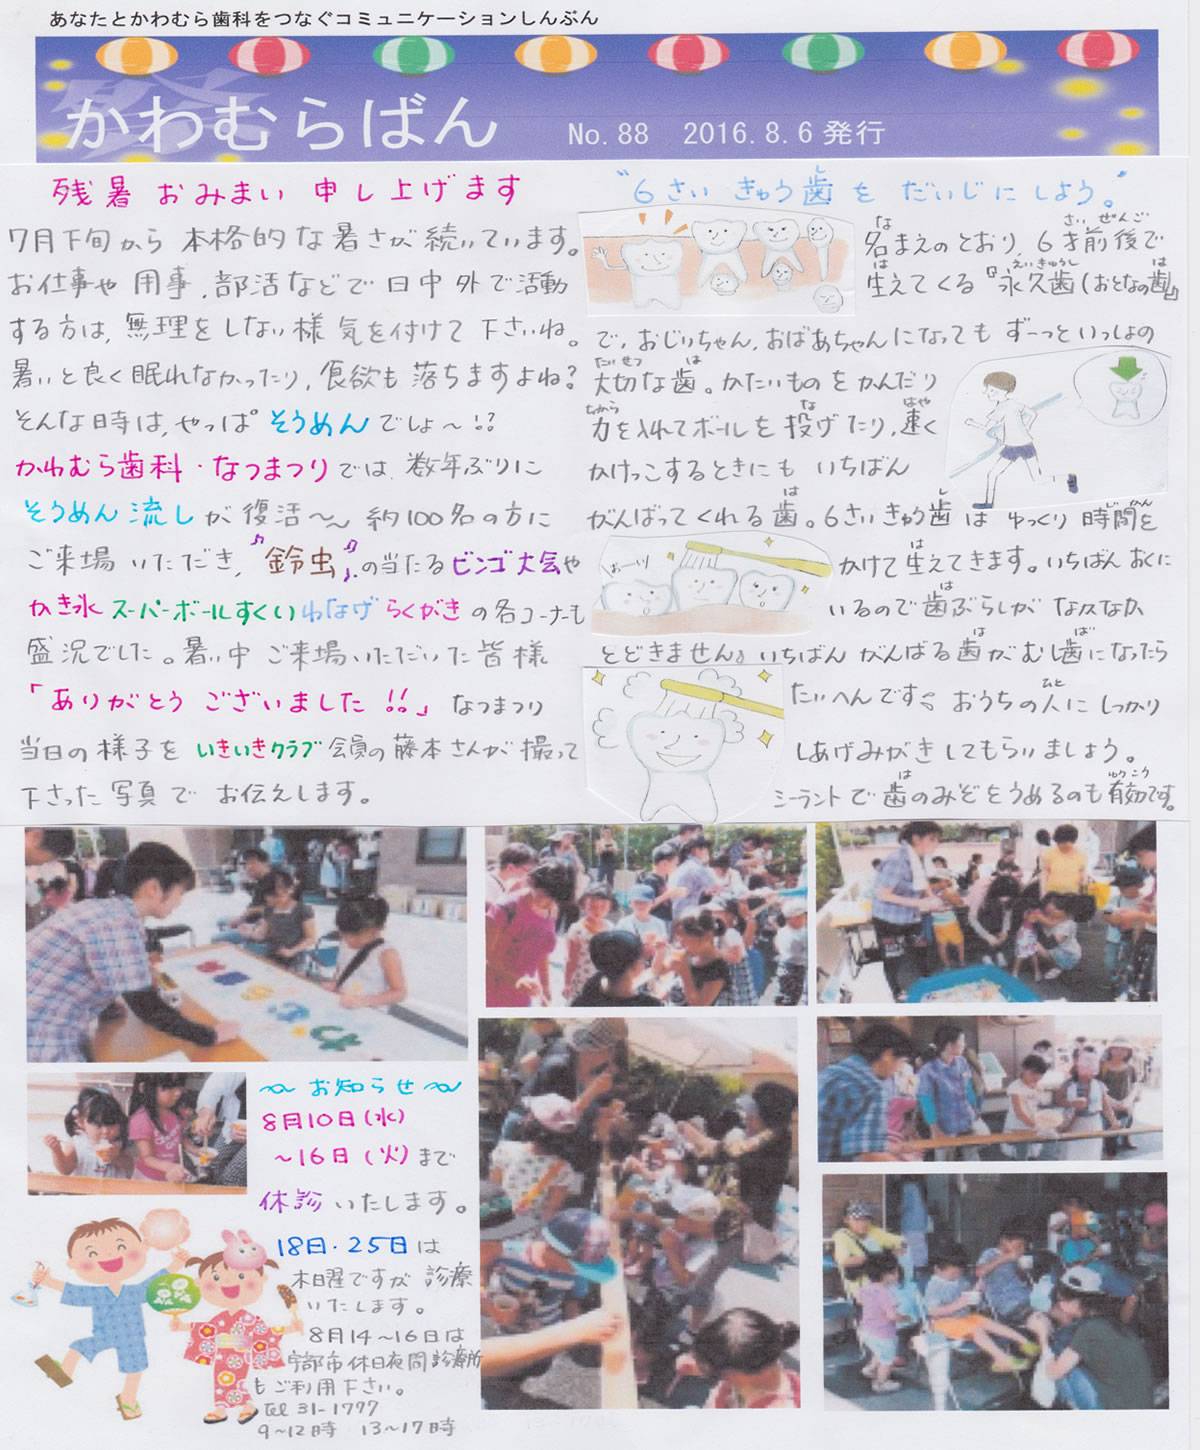 あなたとかわむら歯科をつなぐコミュニケーションしんぶん
かわむらばん No.88 2016.8.6発行
残暑おみまい申し上げます
7月下旬から本格的な暑さが続いています。
お仕事や用事、部活などで日中外で活動
する方は、無理をしない様気を付けて下さいね。
暑いと良く眠れなかったり、食欲も落ちますよね?
そんな日時は、やっぱそうめんでしょ〜!?
かわむら歯科・なつまつりでは、数年ぶりに
そうめん流しが復活〜 約100名の方に
ご来場いただき、"鈴虫"の当たるビンゴ大会や
かき氷 スーパーボールすくい わなげ らくがきの各コーナーも
盛況でした。暑い中ご来場いただいた皆様
「ありがとうございました!!」なつまつり
当日の様子をいきいきクラブ会員の藤本さんが撮って
下さった写真でお伝えします。
"6さいきゅう歯をだいじにしよう。"
名まえのとおり、6才前後で
生えてくる『永久歯(おとなの歯)』
で、おじいちゃん、おばあちゃんになってもずーっといっしょの
大切な歯。かたいものをかんだり
力を入れてボールを投げたり、速く
かけっこするときにもいちばん
がんばってくれる歯。6さいきゅう歯はゆっくり時間を
かけて生えてきます。いちばんおくに
いるので歯ぶらしがなかなか
とどきません。いちばんがんばる歯がむし歯になったら
たいへんです。おうちの人にしっかり
しあげみがきしてもらいましょう。
シーラントで歯のみぞをうめるのも有効です。
〜お知らせ〜
8月10日(水)
〜16日(火)まで
休診いたします。
18日・25日は
木曜ですが診療
いたします。
8月14〜16日は
宇部市休日夜間診療所
もご利用下さい。
Tel 31-1777
9〜12時 13〜17時